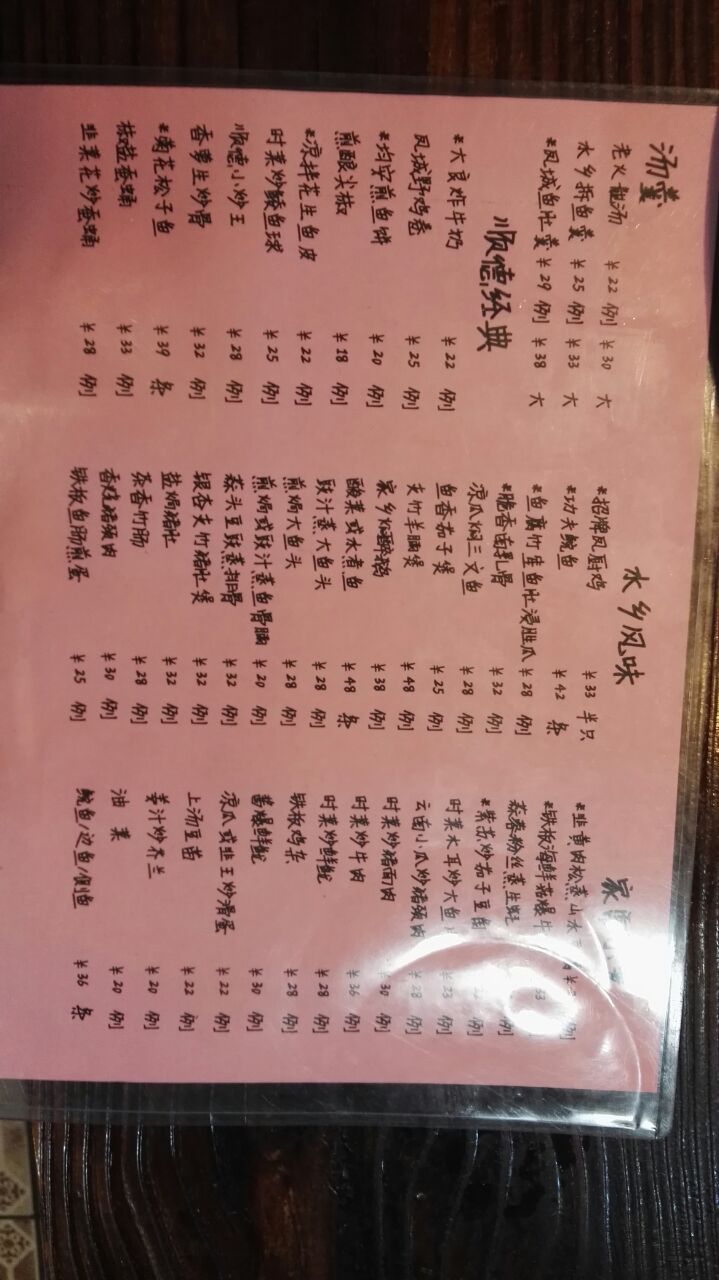 汤羹
老火靓汤 ¥22 例 ¥30 大
水乡拆鱼羹 ¥25 例 ¥33 大
*凤城鱼肚羹 ¥29 例 ¥38 大
顺德经典
*大良炸牛奶 ¥22 例
凤城野鸡卷 ¥25 例
*均安煎鱼饼 ¥20 例
煎酿尖椒 ¥18 例
*凉拌花生鱼皮 ¥22 例
时菜炒鲮鱼球 ¥25 例
顺德小炒王 ¥28 例
香萝生炒骨 ¥32 例
*菊花松子鱼 ¥39 条
椒盐蚕蛹 ¥33 例
韭菜花炒蚕蛹 ¥28 例
水乡风味
*招牌凤厨鸡 ¥33 半只
*功夫鲩鱼 ¥42 条
*鱼腐竹生鱼肚浸胜瓜 ¥28 例
*脆香南乳骨 ¥32 例
凉瓜焖三文鱼 ¥28 例
鱼香茄子煲 ¥25 例
支竹羊腩煲 ¥48 例
家乡焖醉鹅 ¥38 例
酸菜或水煮鱼 ¥48 条
豉汁蒸大鱼头 ¥28 例
煎焗大鱼头 ¥28 例
煎焗或豉汁蒸鱼骨腩 ¥20 例
蒜头豆豉蒸排骨 ¥32 例
银杏支竹猪肚煲 ¥32 例
盐焗猪肚 ¥32 例
茶香竹肠 ¥28 例
香煎猪颈肉 ¥30 例
铁板鱼肠煎蛋 ¥25 例
家
*韭黄肉松蒸山水 例
*铁板海鲜菇爆牛 例
蒜蓉粉丝蒸生蚝 例
*紫苏炒茄子豆角 例
时菜木耳炒大鱼 ¥23 例
云南小瓜炒猪颈肉 ¥28 例
时菜炒猪面肉 ¥30 例
时菜炒牛肉 ¥36 例
时菜炒鲜鱿 ¥28 例
铁板鸡杂 ¥28 例
酱爆鲜鱿 ¥30 例
凉瓜或韭王炒滑蛋 ¥22 例
上汤豆苗 ¥22 例
姜汁炒芥兰 ¥20 例
油菜 ¥20 例
鲩鱼/边鱼/鲫鱼 ¥36 条